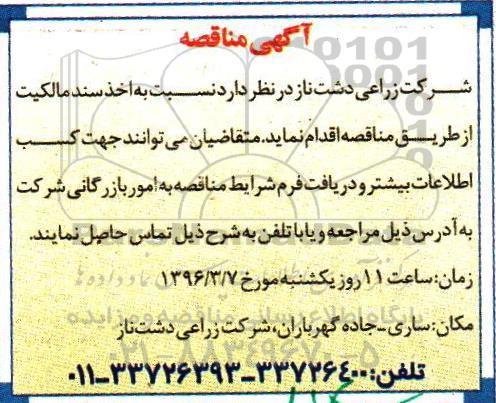 آگهی مناقصه
شرکت زراعی دشت ناز در نظر دارد نسبت به اخذ سند مالکیت
از طریق مناقصه اقدام نماید. متقاضیان می توانند جهت کسب
اطلاعات بیشتر و دریافت فرم شرایط مناقصه به امور بازرگانی شرکت
به آدرس ذیل مراجعه و یا با تلفن به شرح ذیل تماس حاصل نمایند.
زمان: ساعت ۱۱ روز یکشنبه مورخ ۱۳۹۶/۳/۷
مکان: ساری - جاده گهرباران، شرکت زراعی دشت ناز
تلفن: ۳۳۷۲۶۴۰۰ - ۳۳۷۲۶۳۹۳ - ۰۱۱
پایگاه اطلاع رسانی مناقصه و مزایده
۰۲۱-۸۸۳۴۹۶۷۰-۵